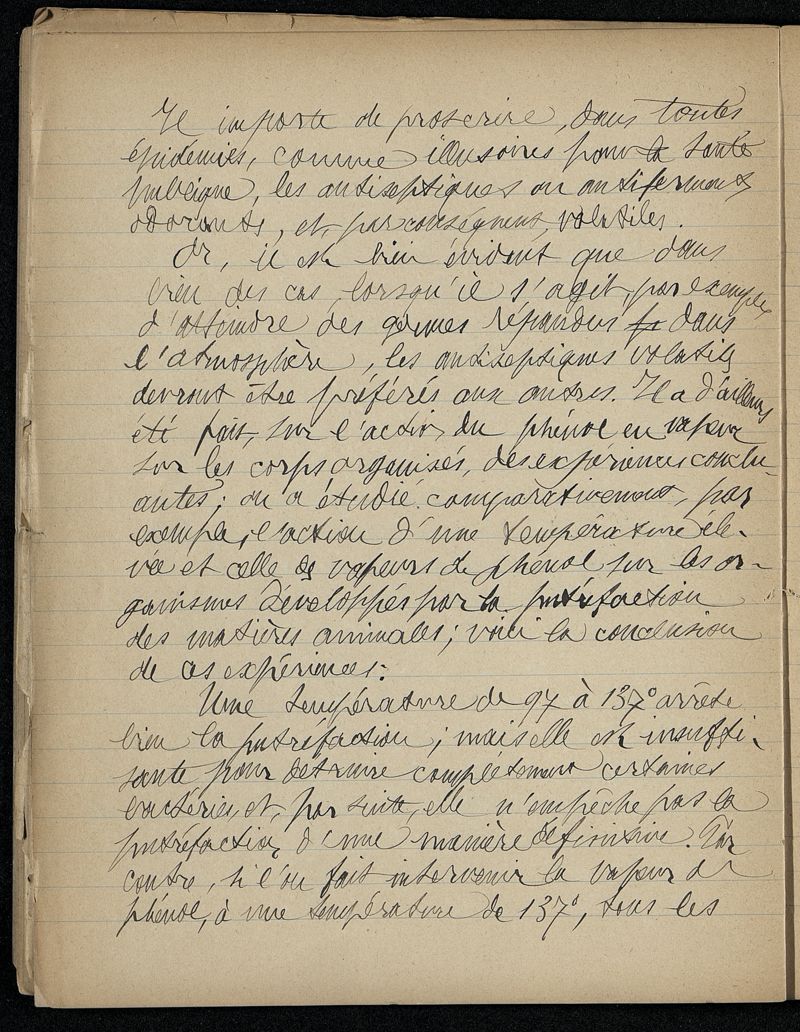 Il importe de proscrire, dans toutes
épidémies, comme illusoires pour la santé
publique, les antiseptiques ou antiferments
odorants, et, par conséquent, volatiles.
Or, il est bien évident que dans
bien des cas, lorsqu'il s'agit, par exemple
d'atteindre des germes répandus dans
l'atmosphère, les antiseptiques volatils
devront être préférés aux autres. Il a d'ailleurs
été fait, sur l'action du phénol en vapeur
sur les corps organisés, des expériences conclu-
antes; on a étudié comparativement, par
exemple, l'action d'une température éle-
vée et celle des vapeurs de phénol sur les or-
ganismes développés par la putréfaction
des matières animales; voici la conclusion
de ces expériences:
Une température de 97 à 137° arrête
bien la putréfaction; mais elle est insuffi-
sante pour détruire complètement certaines
bactéries, et, par suite, elle n'empêche pas la
putréfaction d'une manière définitive. Par
contre, si l'on fait intervenir la vapeur de
phénol, à une température de 137°, tous les